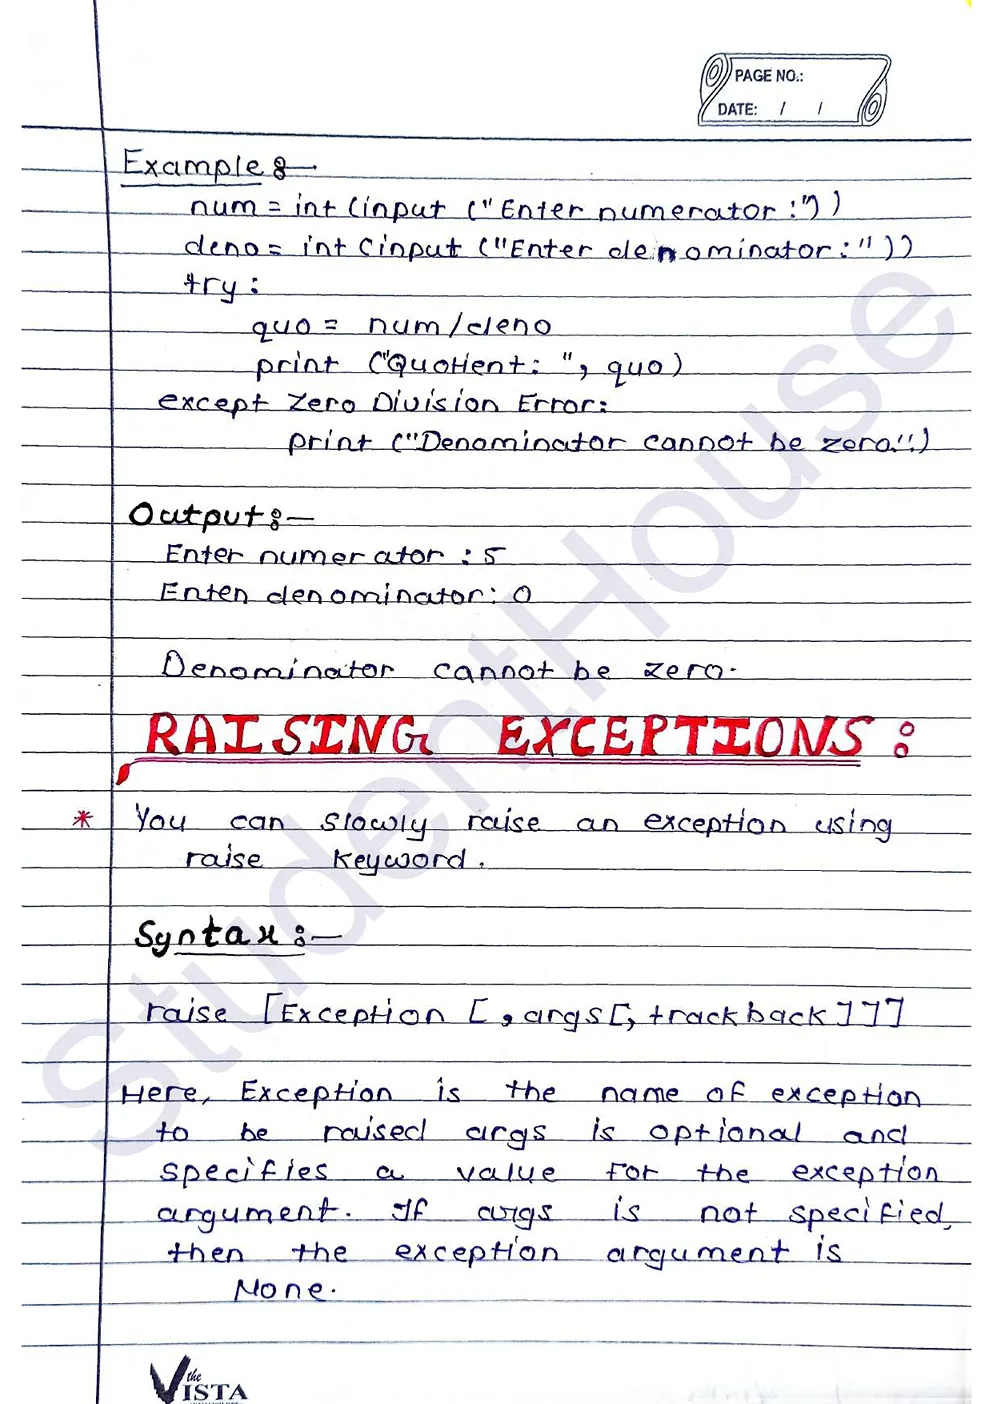 PAGE NO.:
DATE: / /
Example :-
num = int (input ("Enter numerator :"))
deno = int (input ("Enter denominator : "))
try :
quo = num/deno
print ("Quotient : ", quo)
except Zero Division Error:
print ("Denominator cannot be zero.")
Output :-
Enter numerator : 5
Enten denominator : 0
Denominator cannot be zero.
RAISING EXCEPTIONS :
* You can slowly raise an exception using
raise keyword.
Syntax :-
raise [Exception [, args [, trackback ] ] ]
Here, Exception is the name of exception
to be raised args is optional and
specifies a value for the exception
argument. If args is not specified,
then the exception argument is
None.
the
VISTA
StudentHouse